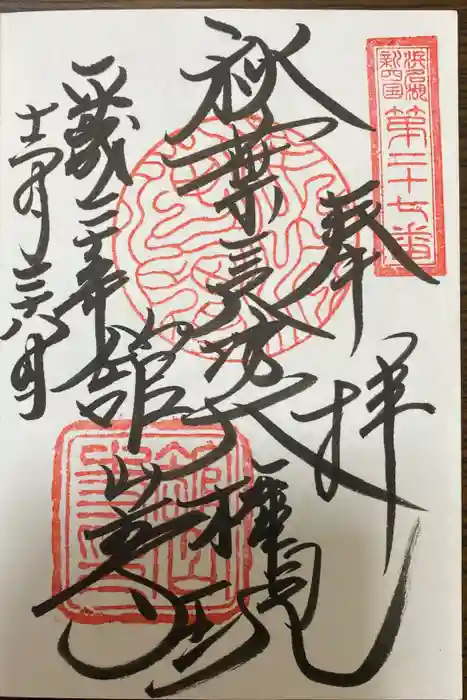 浜名湖
新四国
第三十七番
奉拝
秋葉三尺坊大権現
舘山寺
平成三十年